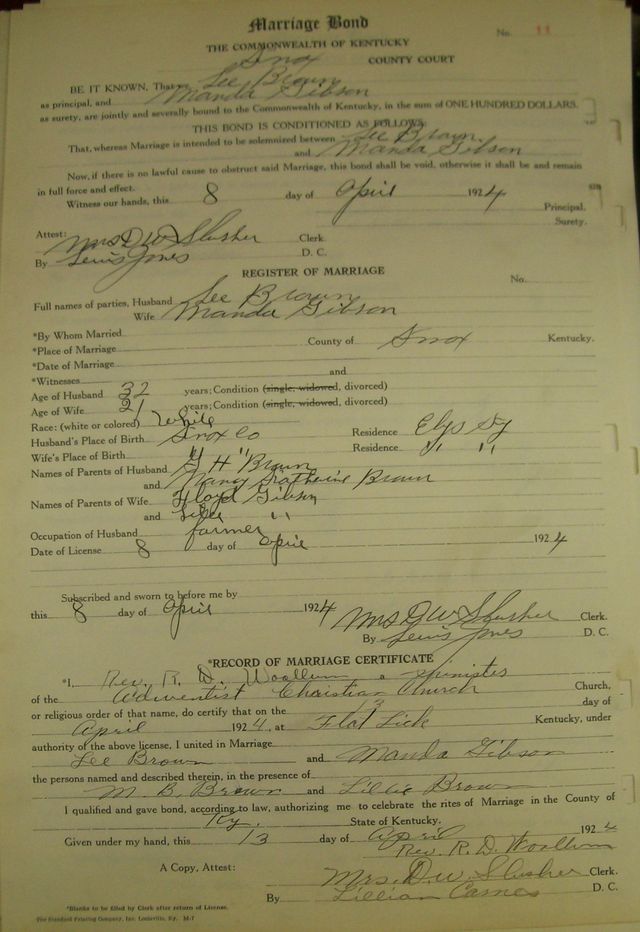 Marriage Bond
No. 11
THE COMMONWEALTH OF KENTUCKY
Knox COUNTY COURT
BE IT KNOWN, That we Lee Brown
as principal, and Manda Gibson
as surety, are jointly and severally bound to the Commonwealth of Kentucky, in the sum of ONE HUNDRED DOLLARS.
THIS BOND IS CONDITIONED AS FOLLOWS:
That, whereas Marriage is intended to be solemnized between Lee Brown
and Manda Gibson
Now, if there is no lawful cause to obstruct said Marriage, this bond shall be void, otherwise it shall be and remain
in full force and effect.
Witness our hands, this 8 day of April 1924
Principal.
Surety.
Attest:
Mrs D W Slusher Clerk.
By Lewis Jones D. C.
REGISTER OF MARRIAGE
No.
Full names of parties, Husband Lee Brown
Wife Manda Gibson
*By Whom Married
*Place of Marriage County of Knox Kentucky.
*Date of Marriage
*Witnesses and
Age of Husband 32 years; Condition (single, widowed, divorced)
Age of Wife 21 years; Condition (single, widowed, divorced)
Race: (white or colored) White
Husband's Place of Birth Knox Co Residence Elys Ky
Wife's Place of Birth " " Residence " "
Names of Parents of Husband H Brown
and Nancy Katherine Brown
Names of Parents of Wife Floyd Gibson
and "
Occupation of Husband farmer
Date of License 8 day of April 1924
Subscribed and sworn to before me by
this 8 day of April 1924 Mrs D W Slusher Clerk.
By Lewis Jones D. C.
*RECORD OF MARRIAGE CERTIFICATE
*I, Rev. R. D. Woollum a minister
of the Adventist Christian Church Church,
or religious order of that name, do certify that on the 13 day of
April 1924, at Flat Lick Kentucky, under
authority of the above license, I united in Marriage
Lee Brown and Manda Gibson
the persons named and described therein, in the presence of
M. B. Brown and Lillie Brown
I qualified and gave bond, according to law, authorizing me to celebrate the rites of Marriage in the County of
Ky. State of Kentucky.
Given under my hand, this 13 day of April 1924
Rev. R. D. Woollum
A Copy, Attest: Mrs. D. W. Slusher Clerk.
By Lillian Carnes D. C.
*Blanks to be filled by Clerk after return of License.
The Standard Printing Company, Inc. Louisville, Ky. M-7